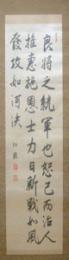 良將之統軍也恕己而治人
推惠施恩士力日新戰如風
發攻如河決